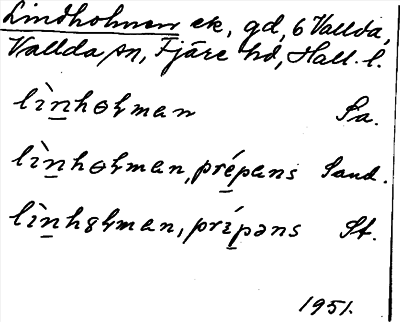 Lindholmen ek, gd, 6 Vallda,
Vallda sn, Fjäre hd, Hall. l.
lìn̲hɵɫman Sa.
lìn̲hɵɫman, pré̲pans Sand.
lìn̲h8ɫman, prí̲pəns St.
1951.